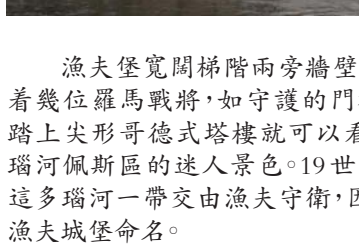 漁夫堡寬闊梯階兩旁牆壁
着幾位羅馬戰將，如守護的門
踏上尖形哥德式塔樓就可以看
瑙河佩斯區的迷人景色。19世
這多瑙河一帶交由漁夫守衛，因
漁夫城堡命名。